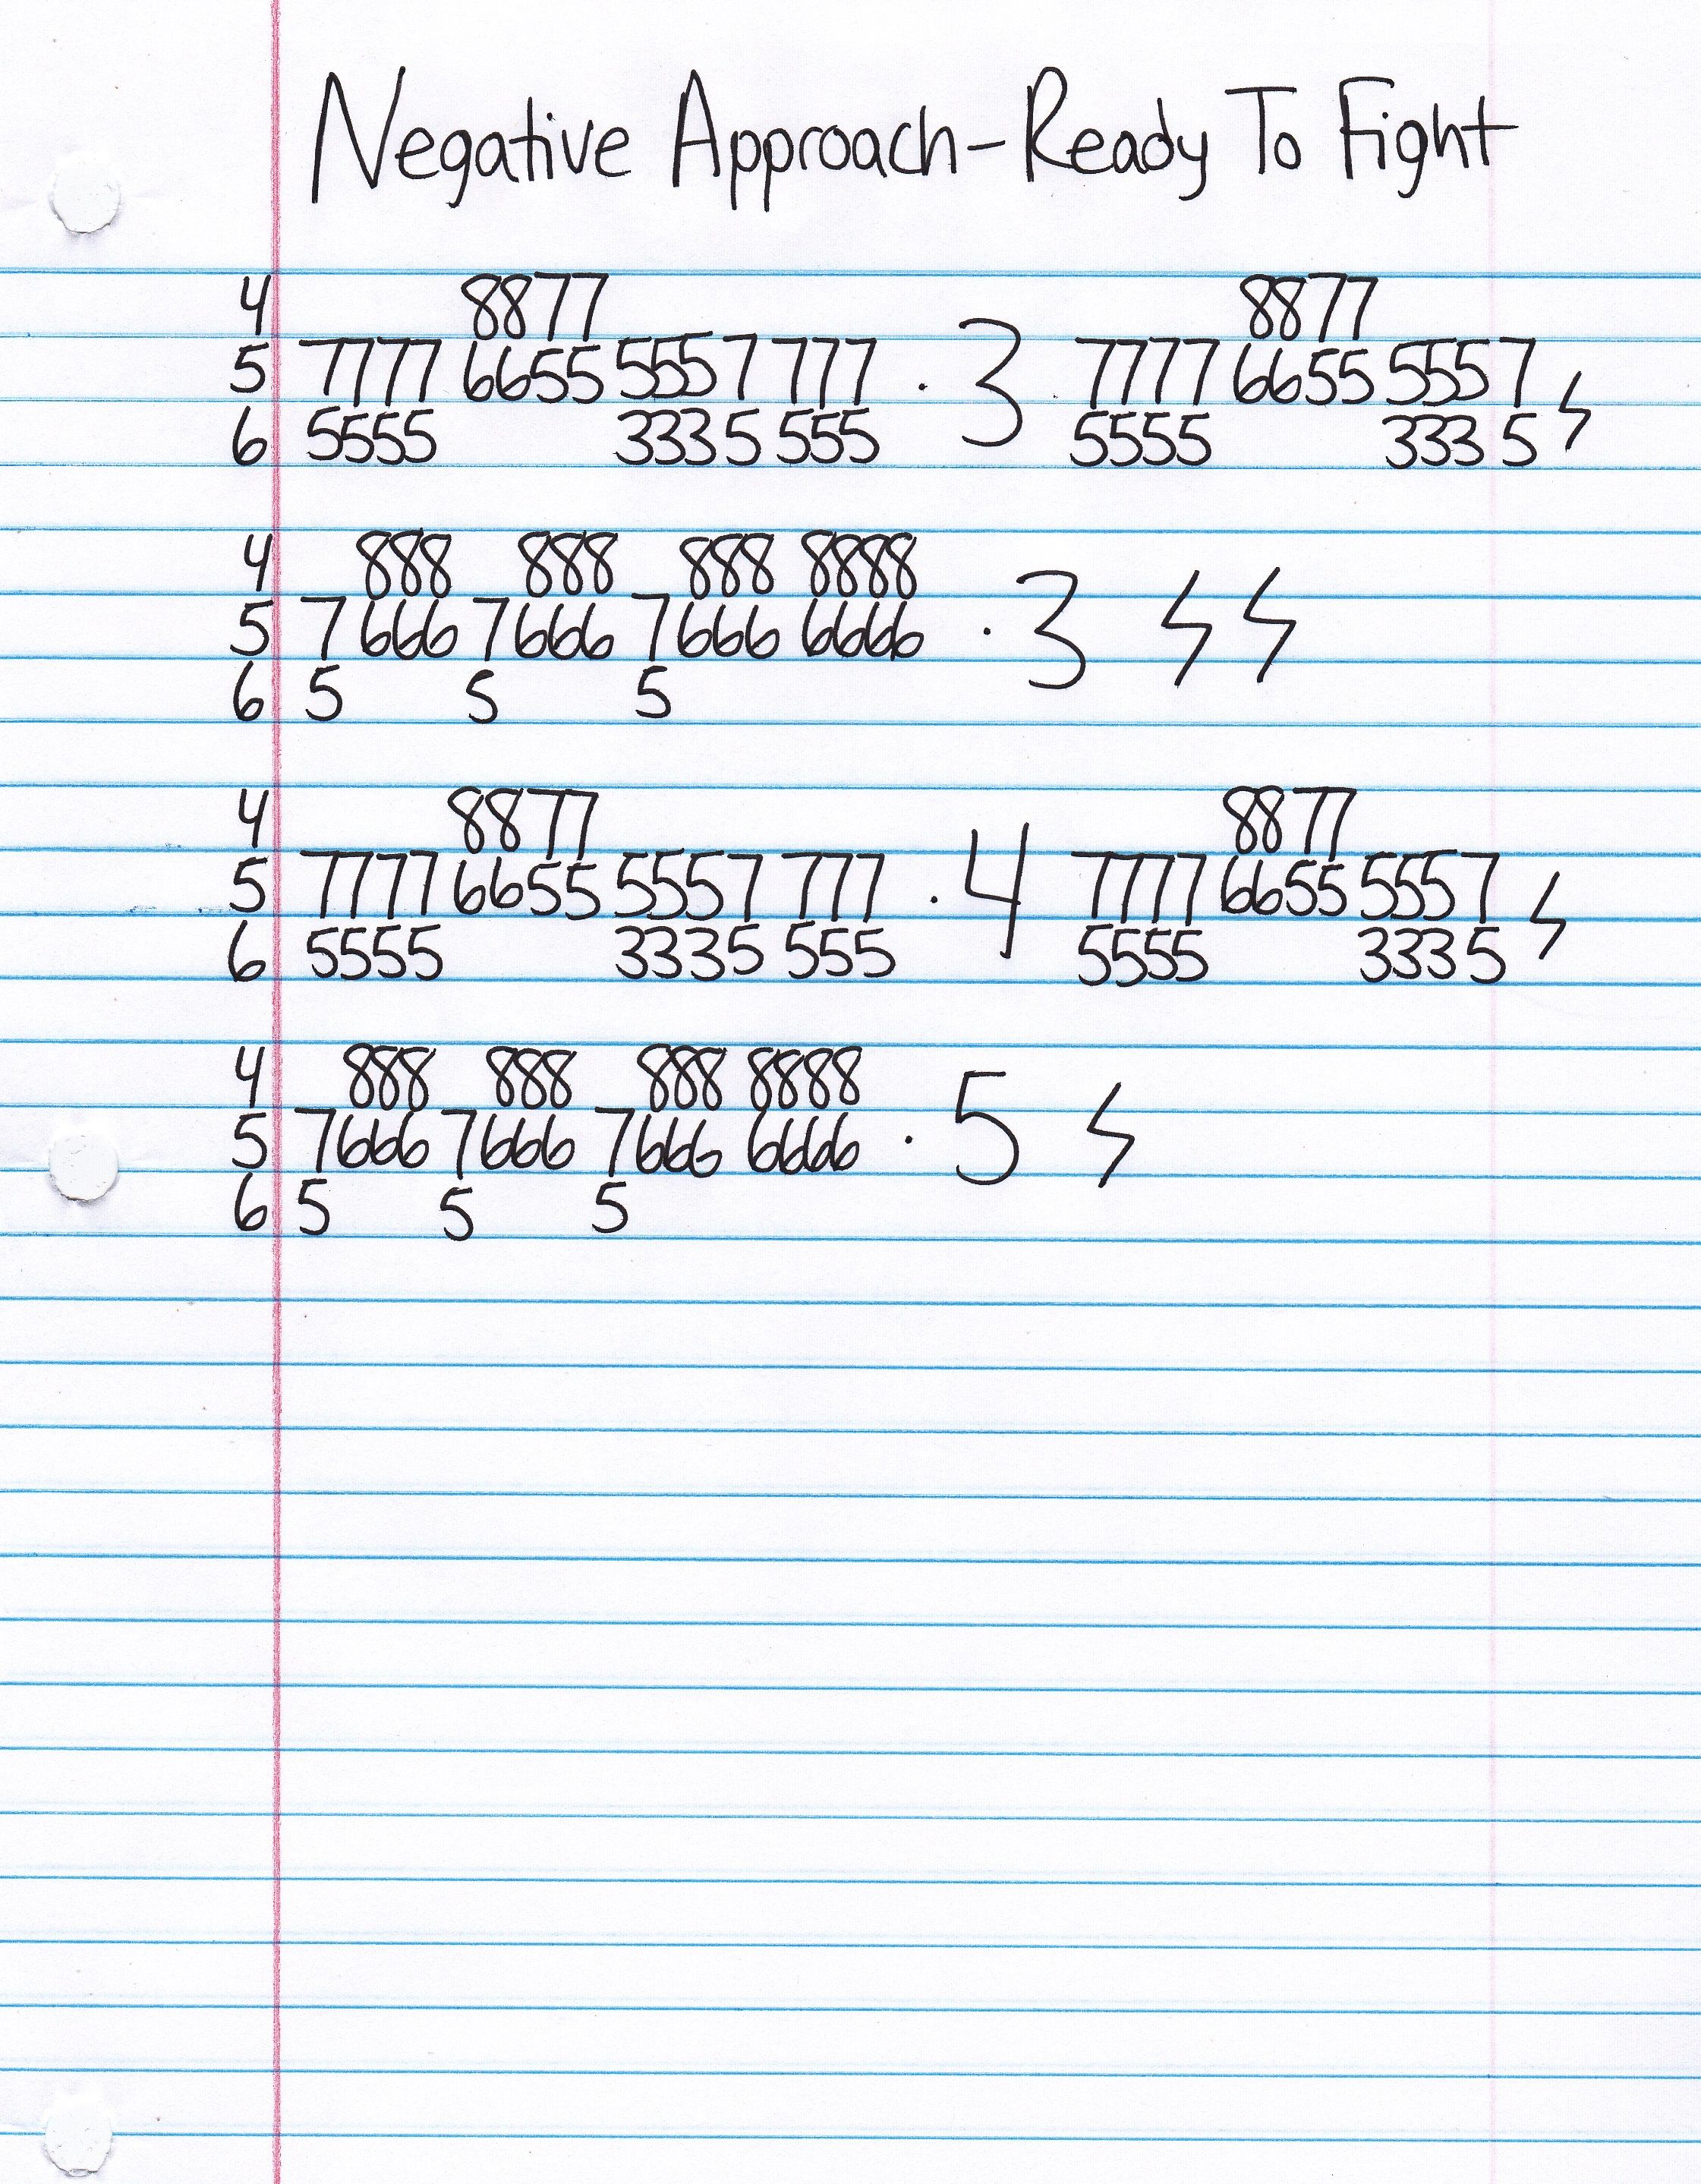 Negative Approach-Ready To Fight
4 8877 8877
5 7777 6655 5557 777 · 3 7777 6655 5557 ϟ
6 5555 3335 555 5555 333 5
4 888 888 888 8888
5 7 666 7 666 7 666 6666 · 3 ϟ ϟ
6 5 5 5
4 8877 8877
5 7777 6655 5557 777 · 4 7777 6655 5557 ϟ
6 5555 3335 555 5555 3335
4 888 888 888 8888
5 7666 7666 7666 6666 · 5 ϟ
6 5 5 5